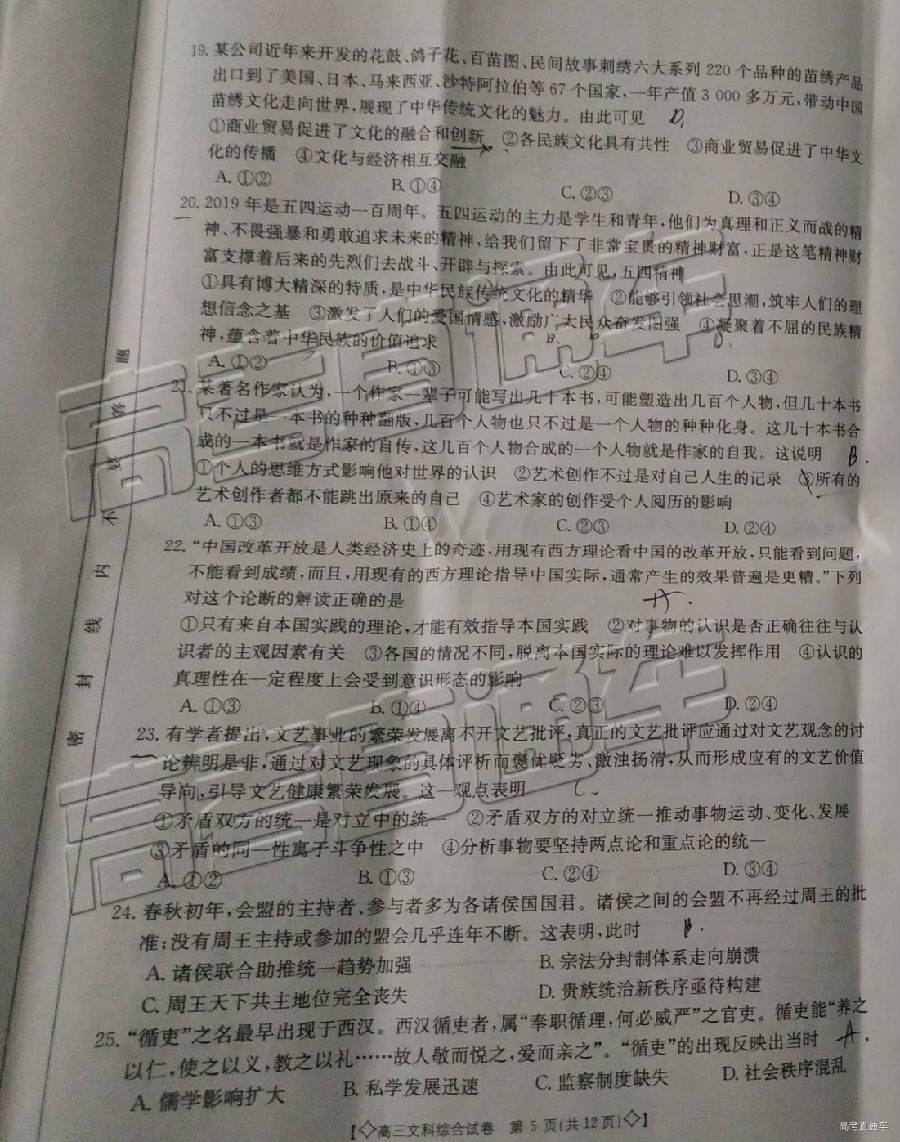 19. 某公司近年来开发的花鼓、鸽子花、百苗图、民间故事刺绣六大系列 220 个品种的苗绣产品
出口到了美国、日本、马来西亚、沙特阿拉伯等 67 个国家,一年产值 3 000 多万元,带动中国
苗绣文化走向世界,展现了中华传统文化的魅力。由此可见 D.
①商业贸易促进了文化的融合和创新 ②各民族文化具有共性 ③商业贸易促进了中华文
化的传播 ④文化与经济相互交融
A. ①② B. ①④ C. ②③ D. ③④
20. 2019 年是五四运动一百周年。五四运动的主力是学生和青年,他们为真理和正义而战的精
神、不畏强暴和勇敢追求未来的精神,给我们留下了非常宝贵的精神财富,正是这笔精神财
富支撑着后来的先烈们去战斗、开辟与探索。由此可见,五四精神
①具有博大精深的特质,是中华民族传统文化的精华 ②能够引领社会思潮,筑牢人们的理
想信念之基 ③激发了人们的爱国情感,激励广大民众奋发图强 ④凝聚着不屈的民族精
神,蕴含着中华民族的价值追求
A. ①② B. ①③ C. ②④ D. ③④
21. 某著名作家认为,一个作家一辈子可能写出几十本书,可能塑造出几百个人物,但几十本书
只不过是一本书的种种翻版,几百个人物也只不过是一个人物的种种化身。这几十本书合
成的一本书就是作家的自传,这几百个人物合成的一个人物就是作家的自我。这说明 B.
①个人的思维方式影响他对世界的认识 ②艺术创作不过是对自己人生的记录 ③所有的
艺术创作者都不能跳出原来的自己 ④艺术家的创作受个人阅历的影响
A. ①③ B. ①④ C. ②③ D. ②④
22. “中国改革开放是人类经济史上的奇迹,用现有西方理论看中国的改革开放,只能看到问题,
不能看到成绩,而且,用现有的西方理论指导中国实际,通常产生的效果普遍是更糟。”下列
对这个论断的解读正确的是
①只有来自本国实践的理论,才能有效指导本国实践 ②对事物的认识是否正确往往与认
识者的主观因素有关 ③各国的情况不同,脱离本国实际的理论难以发挥作用 ④认识的
真理性在一定程度上会受到意识形态的影响
A. ①③ B. ①④ C. ②③ D. ②④
23. 有学者提出,文艺事业的繁荣发展离不开文艺批评,真正的文艺批评应通过对文艺观念的讨
论辨明是非,通过对文艺现象的具体评析而褒优贬劣、激浊扬清,从而形成应有的文艺价值
导向,引导文艺健康繁荣发展。这一观点表明 C.
①矛盾双方的统一是对立中的统一 ②矛盾双方的对立统一推动事物运动、变化、发展
③矛盾的同一性寓于斗争性之中 ④分析事物要坚持两点论和重点论的统一
A. ①② B. ①③ C. ②④ D. ③④
24. 春秋初年,会盟的主持者、参与者多为各诸侯国国君。诸侯之间的会盟不再经过周王的批
准;没有周王主持或参加的盟会几乎连年不断。这表明,此时 B.
A. 诸侯联合助推统一趋势加强 B. 宗法分封制体系走向崩溃
C. 周王天下共主地位完全丧失 D. 贵族统治新秩序亟待构建
25. “循吏”之名最早出现于西汉。西汉循吏者,属“奉职循理,何必威严”之官吏。循吏能“养之
以仁,使之以义,教之以礼……故人敬而悦之,爱而亲之”。“循吏”的出现反映出当时 A.
A. 儒学影响扩大 B. 私学发展迅速 C. 监察制度缺失 D. 社会秩序混乱
【◇高三文科综合试卷 第 5 页(共 12 页)◇】
密 封 线 内 不 要 答 题
高考直通车
高考直通车
高考直通车